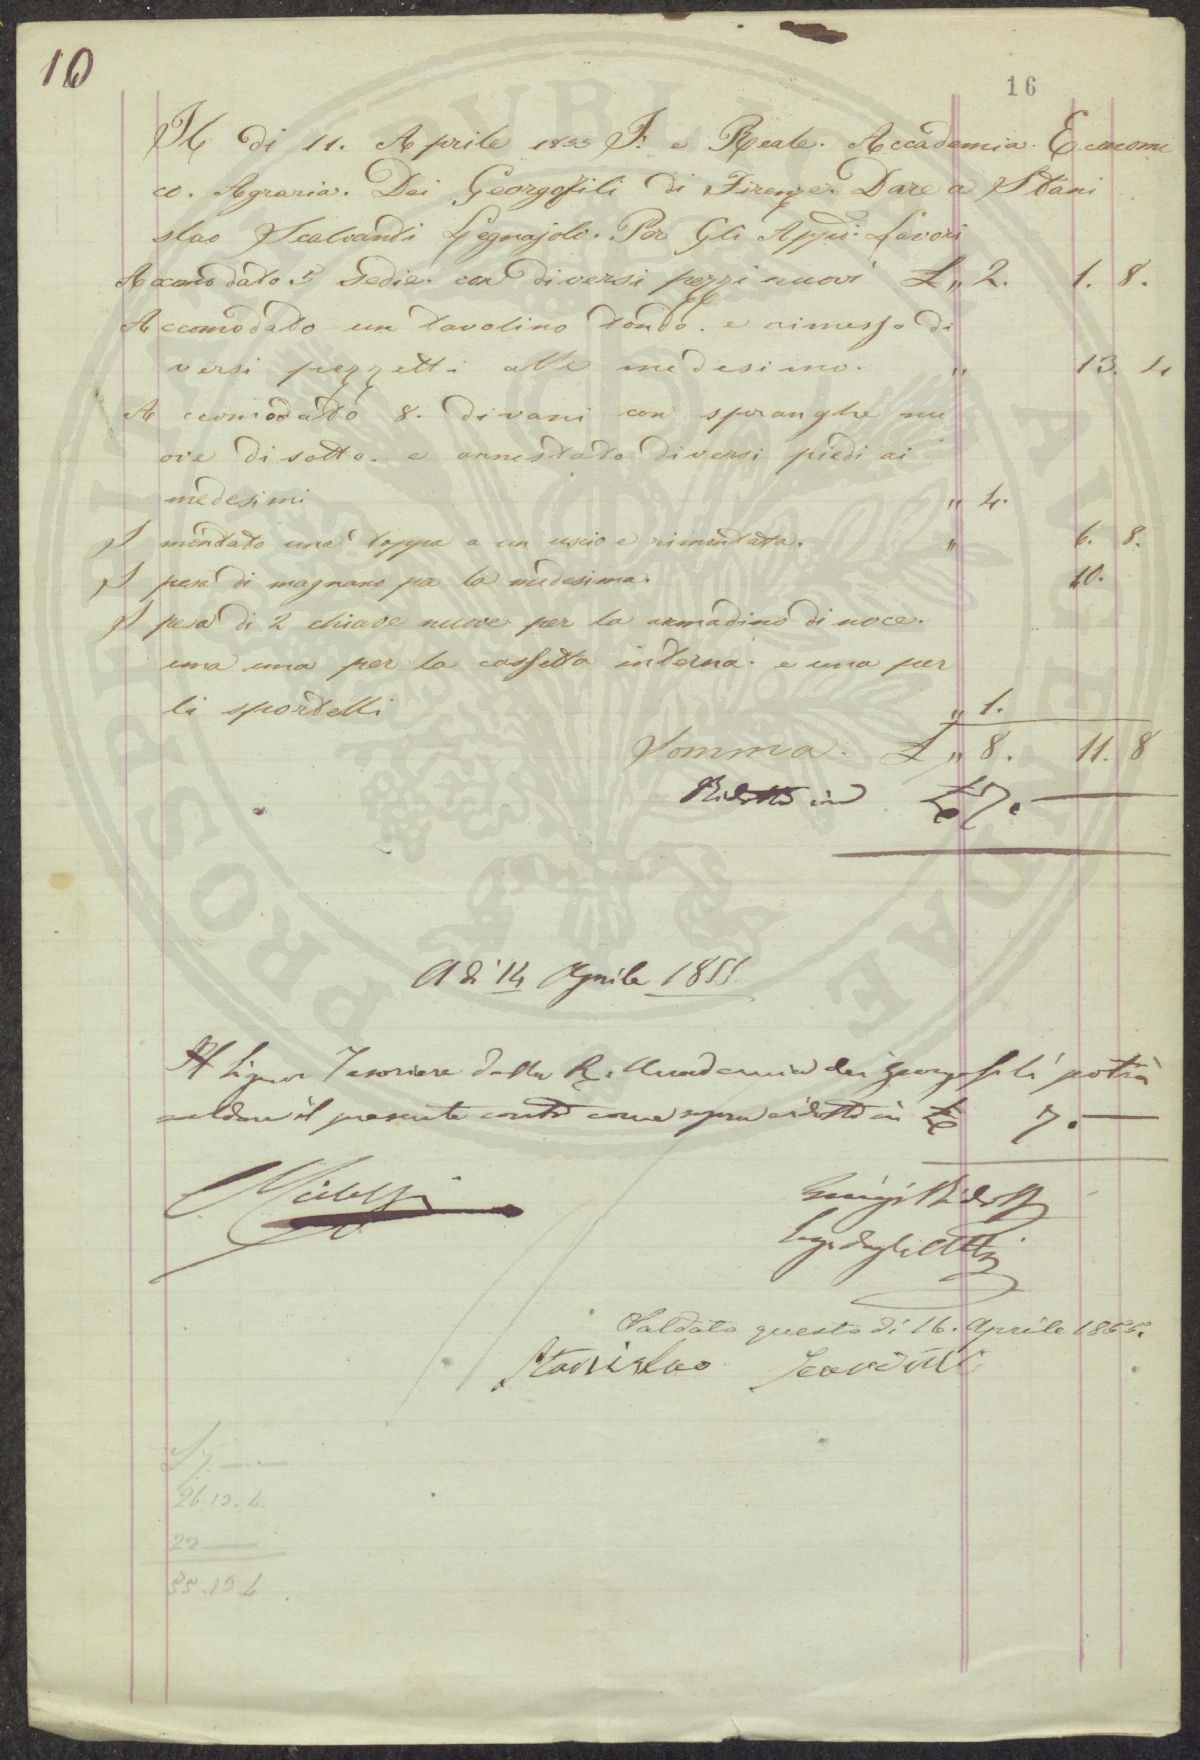 10
16
Il di 11. Aprile 1855 I: e Reale. Accademia. Economi
co. Agraria. Dei Georgofili di Firenze. Dare a Stani
slao Scalvanti Legnajolo. Per Gli Appiè. Lavori
Accomodato 5 Sedie. con diversi pezzi nuovi £ " 2. 1. 8.
Accomodato un tavolino tondo. e rimesso di
versi pezzetti alle medesimo. " 13. 4
Accomodato 8. divani con spranghe nu
ove di sotto. e annestato diversi piedi ai
medesimi " 4.
Smontato una toppa a un uscio e rimontata. " 6. 8.
Spesa di magnano per la medesima. 10.
Spesa di 2 chiave nuove per la armadino di noce.
una una per la cassetta interna. e una per
li sportelli " 1.
Somma. £ " 8. 11. 8
Ridotto in £ 7. —
A di 14 Aprile 1855
Il Signor Tesoriere della R. Accademia dei Georgofili potrà
saldare il presente conto come sopra ridotto in £ 7. —
Luigi Ridolfi
Saldato questo di 16. Aprile 1855.
Stanislao
£ 7. —
26.13.4
22 —
55.13.4
VBLI
PROSPERITATI
AVGENDAE